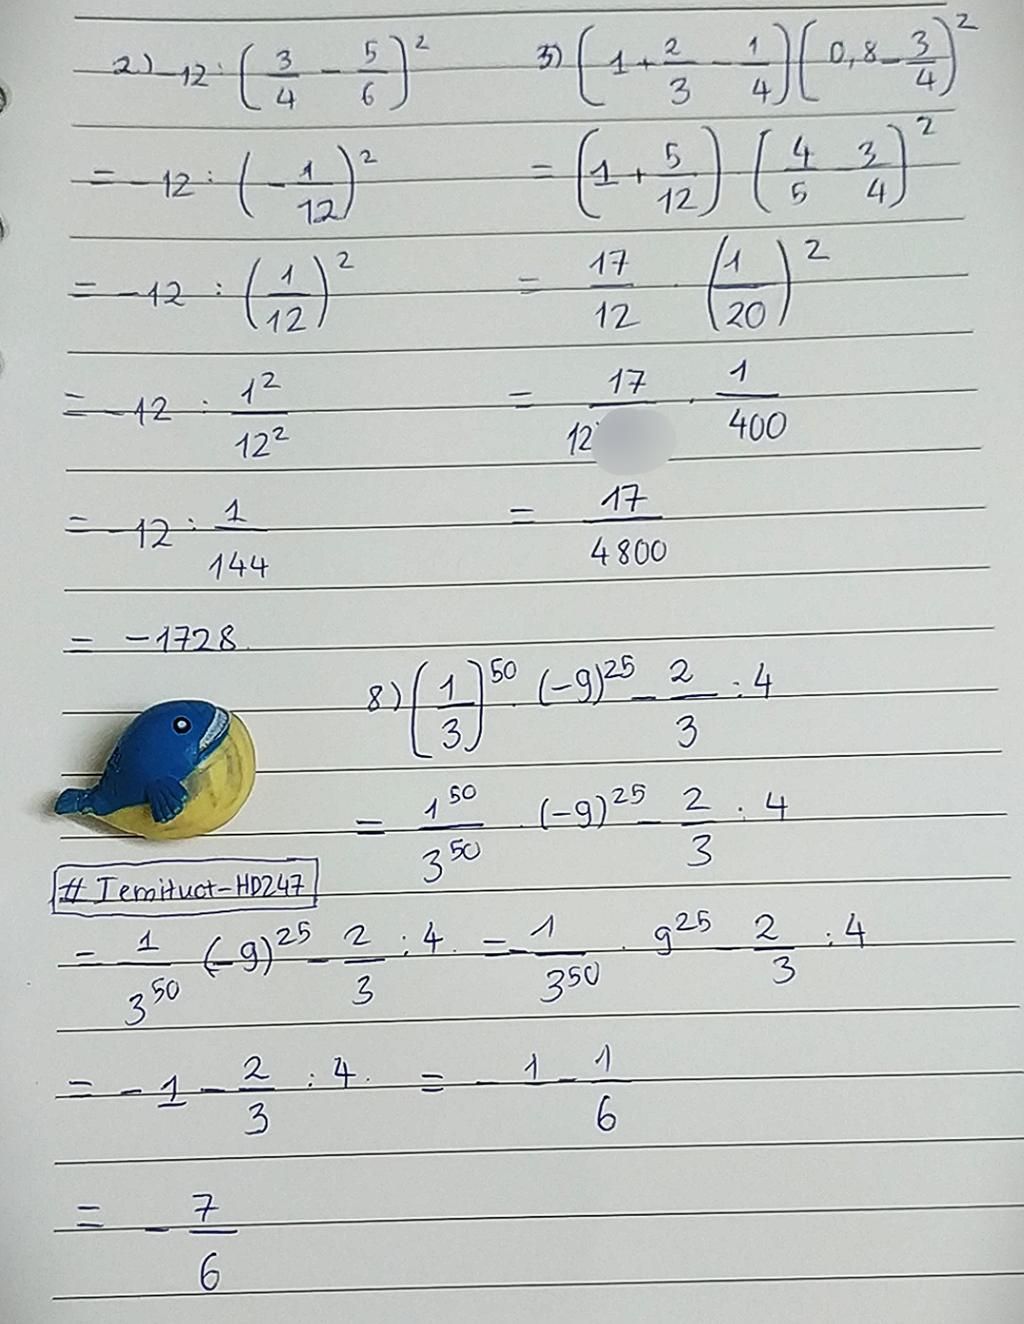 2) -12 : (3/4 - 5/6)²
= -12 : (-1/12)²
= -12 : (1/12)²
= -12 : 1²/12²
= -12 : 1/144
= -1728.
3) (1 + 2/3 - 1/4)(0,8 - 3/4)²
= (1 + 5/12) · (4/5 - 3/4)²
= 17/12 · (1/20)²
= 17/12 · 1/400
= 17/4800
8) (1/3)⁵⁰ · (-9)²⁵ - 2/3 : 4
= 1⁵⁰/3⁵⁰ · (-9)²⁵ - 2/3 : 4
# Temituct-HD247
= 1/3⁵⁰ (-9)²⁵ - 2/3 : 4. = -1/3⁵⁰ · 9²⁵ - 2/3 : 4
= -1 - 2/3 : 4. = -1 - 1/6
= -7/6